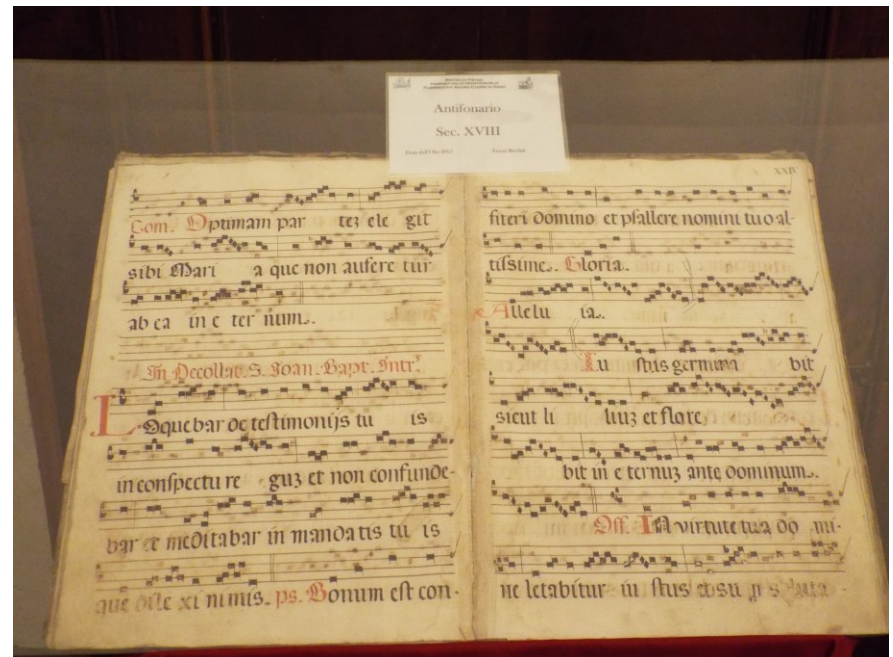 Antifonario
Sec. XVIII
XXIV
Com. Optimam par tez ele git
sibi Mari a que non aufere tur
ab ea in e ter num.
In Decollat. S. Joan. Bapt. Intr.
Loquebar de testimonijs tu is
in conspectu re guz et non confunde-
bar et meditabar in manda tis tu is
que dile xi nimis. ps. Bonum est con-
fiteri domino et psallere nomini tuo al-
tissime. Gloria.
Allelu ia.
Iu stus germina bit
sicut li liuz et flore
bit in e ternuz ante dominum.
Off. In virtute tua do mi-
ne letabitur iu stus et su p s